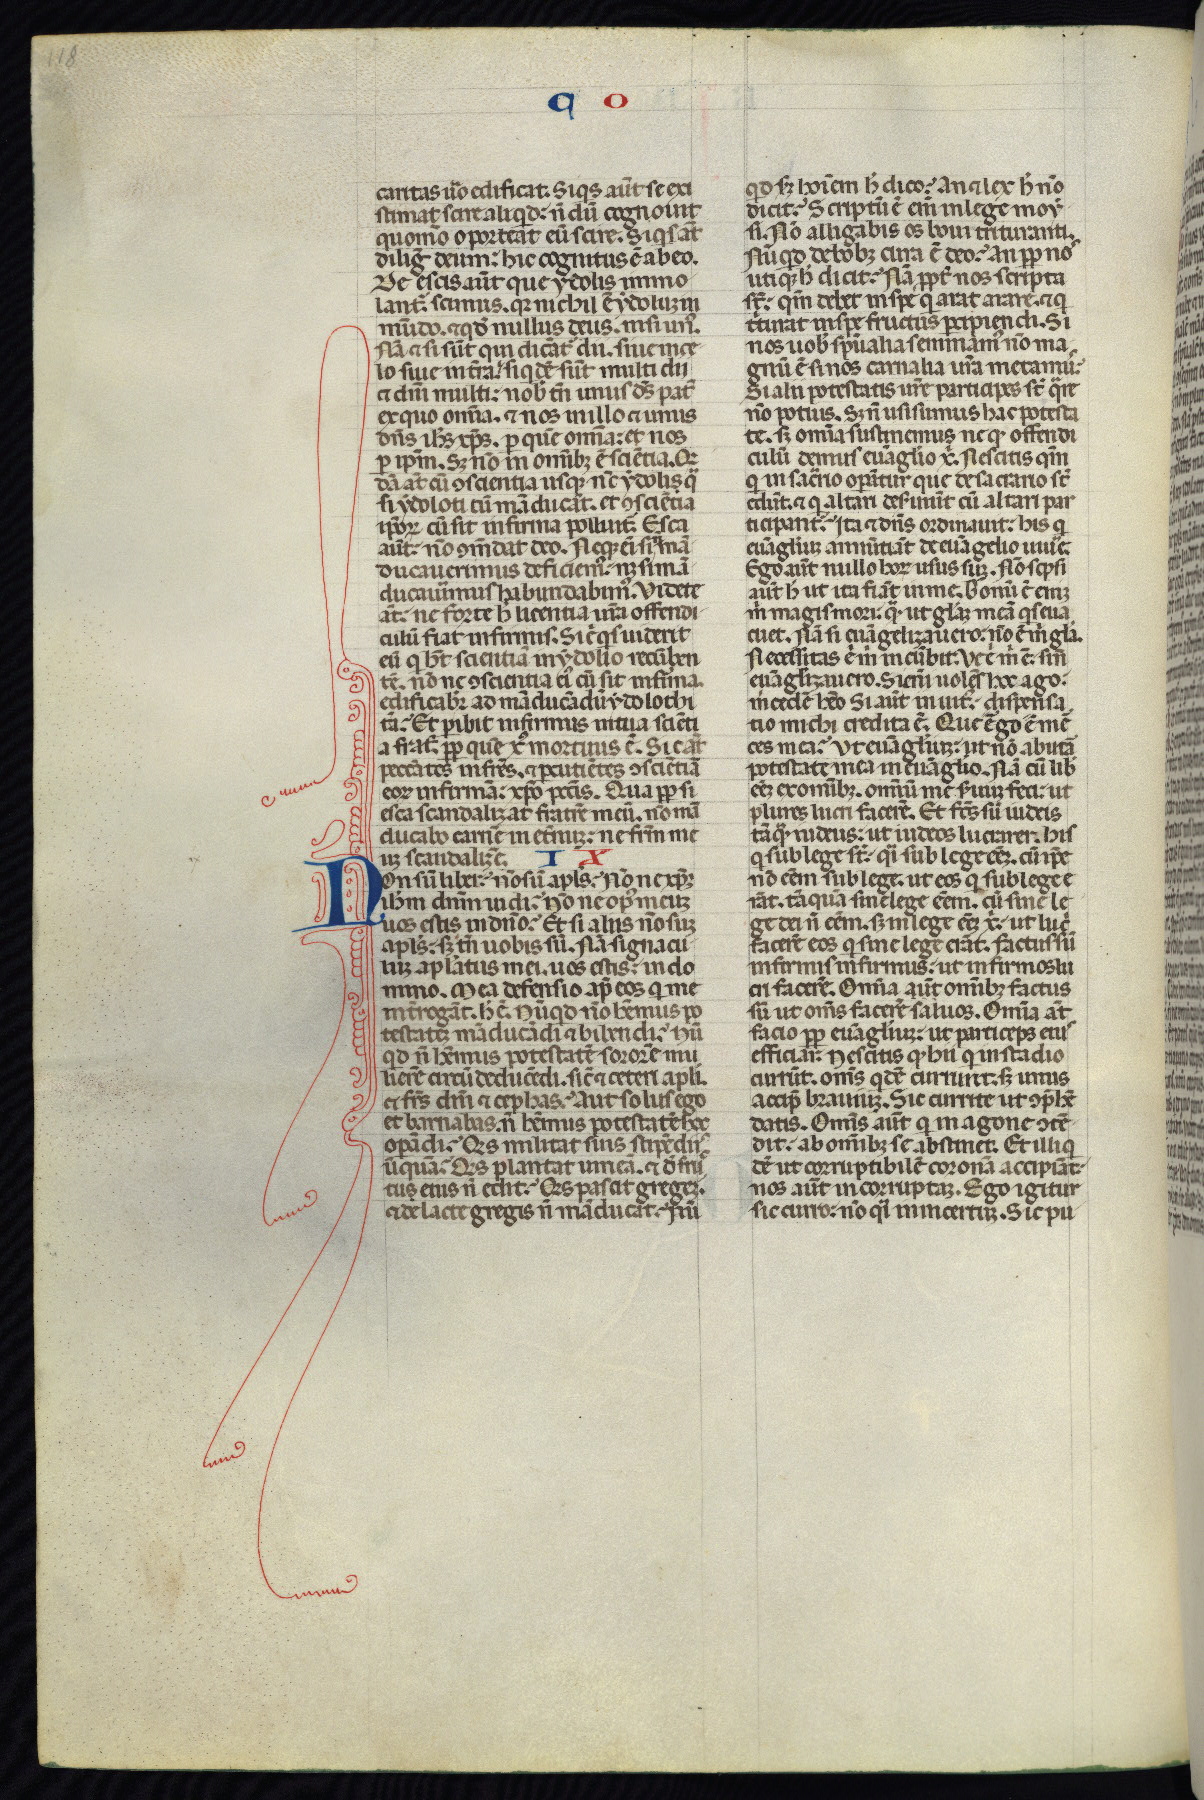 118
q o
caritas ũo edificat. Siqs aũt se exi
stimat scire aliqd: ñ dũ cognouit
quomo oporteat eũ scire. Siqs aũt
dilig̃ deum: hic cognitus ẽ ab eo.
De escis aũt que ydolis immo
lant̃. scimus. qr nichil ẽ ydolũ in
mũdo. ⁊ qd nullus deus. nisi un᷒.
Nã ⁊ si sũt qui dicãt᷒ dii. siue in ce
lo siue in t̃ra. siqdẽ sũt multi dii
⁊ dñi multi: nob̃ tñ unus ds̃ pat̃
ex quo omĩa. ⁊ nos in illo ⁊ unus
dñs ih̃s xp̃s. p quẽ omĩa: et nos
p ip̃m. Sꝫ no in omĩbꝫ ẽ sciẽtia. Qr
dã aũt cũ ꝯscientia usqꝫ nc̃ ydoli. q̃
si ydoloti cũ mãducãt. et ꝯsciẽtia
ip̃oꝝ cũ sit infirma polluit᷒. Esca
aũt: no ꝯm̃dat deo. Neqꝫ ei si mã
ducauerimus deficiem᷒. nꝫ si mã
ducaũimus habundabim᷒. Videte
aũt: ne forte h̃ licentia ur̃a offendi
culũ fiat infirmis. Si ei qs uiderit
eũ q h̃t scientiã in ydolio recũben
tẽ. no ne ꝯscientia ei᷒ cũ sit infirma.
edificabit᷒ ad mãducãdũ ydolothi
tũ: Et pibit infirmus in tua sciẽti
a frat̃. pp quẽ x᷒ mortuus ẽ. Sic aũt
peccãtes in fr̃es. ⁊ pcutiẽtes ꝯsciẽtiã
eoꝝ infirmã: xp̃o pctis. Qua pp si
esca scandalizat fratrẽ meũ. no mã
ducabo carnẽ in et̃nũ: ne fr̃m me
uꝫ scandalizẽ. I X
Non sũ liber: no sũ apl̃s: No ne xp̃ꝫ
ih̃m dñm uidi: No ne op᷒ meuꝫ
uos estis in dño: Et si aliis no suꝫ
apl̃s: sꝫ tñ uobis sũ. Nã signacu
luꝫ apl̃atus mei. uos estis: in do
mino. Mea defensio ap̃ eos q me
int̃rogãt. h̃ ẽ. Nũqd no hẽmus po
testatẽ mãducãdi ⁊ bibendi: Nũ
qd ñ hẽmus potestatẽ sororẽ mu
lierẽ circũ ducẽdi. sic ⁊ ceteri apl̃i.
⁊ fr̃s dñi ⁊ cephas: Aut solus ego
et barnabas. ñ hẽmus potestatẽ hoc
opãdi: Qis militat suis stipẽdiis
ũquã: Qis plantat uineã. ⁊ de fru
ctus eius ñ edit: Qis pascit gregeꝫ.
⁊ de lacte gregis ñ mãducat: Nũ
qd sꝫ hoiem h̃ dico: An ⁊ lex h̃ no
dicit: Scriptũ ẽ eni in lege moy
si. No alligabis os boui trituranti.
Nũqd de bobꝫ cura ẽ deo: An pp nos
utiqꝫ h̃ dicit: Nã ppt̃ nos scripta
st̃: qm̃ debet in spe q arat arare. ⁊ q
t̃turat in spe fructus percipiendi. Si
nos uob̃ sp̃ualia seminam᷒ no ma
gnũ ẽ si nos carnalia ur̃a metam᷒:
Si alii potestatis ur̃e participes st̃ q̃re
no potius. Sꝫ ñ usi sumus hac potesta
te. sꝫ omĩa sustinemus ne q̃ offendi
culũ demus euãglio x᷒. Nescitis qm̃
q in sac̃rio opant᷒ que de sacrario st̃
edũt. ⁊ q altari des̃uiũt cũ altari par
ticipant᷒: Ita ⁊ dñs ordinauit: his q
euãgliuꝫ annũtiãt de euãgelio uiu᷒e.
Ego aũt nullo hoꝝ usus suꝫ. No sc̃psi
aũt h̃ ut ita fiãt in me. Bonũ ẽ eni
m̃ magis mori: q̃ ut gl̃iaꝫ meã qs eua
cuet. Nã si euãgelizauero: no ẽ m̃ gl̃a.
Necessitas ẽ m̃ incũbit: Ve ẽ m̃ ẽ. si ñ
euãglizauero. Si eni uolẽs hoc ago:
mercedẽ hẽo Si aũt inuit᷒: dispensa
tio michi credita ẽ. Que ẽ ego ẽ mẽ
ces mea: Vt euãgliuꝫ: ut no abutã
potestate mea in euãglio. Nã cũ lib̃
eẽ ex omĩbꝫ. omĩũ me s̃uũ feci: ut
plures luci facerẽ. Et fc̃s sũ iudeis
tãq̃ iudeus: ut iudeos lucrarer. his
q sub lege st̃: q̃i sub lege eẽꝫ. cũ ip̃e
no eẽm sub lege. ut eos q sub lege e
rãt. tãquã sine lege eẽm. cũ sine le
ge dei ñ eẽm. sꝫ in lege eẽꝫ x᷒: ut luc̃
facerẽ eos q sine lege erãt. factus sũ
infirmis infirmus: ut infirmos lu
cri facerẽ. Omĩa aũt omĩbꝫ factus
sũ ut omĩs facerẽ saluos. Omĩa aũt
facio pp euãgliuꝫ: ut particeps eius
efficiar: Nescitis q hii q in stadio
currũt. omĩs qdẽ currunt: sꝫ unus
accip̃ brauiuꝫ. Sic currite ut ꝯp̃hẽ
datis. Omĩs aũt q in agone ꝯtẽ
dit: ab omĩbꝫ se abstinet. Et illi q
dẽ ut corruptibilẽ coronã accipiãt:
nos aũt incorruptaꝫ. Ego igitur
sic curro: no q̃i in incertuꝫ. Sic pu